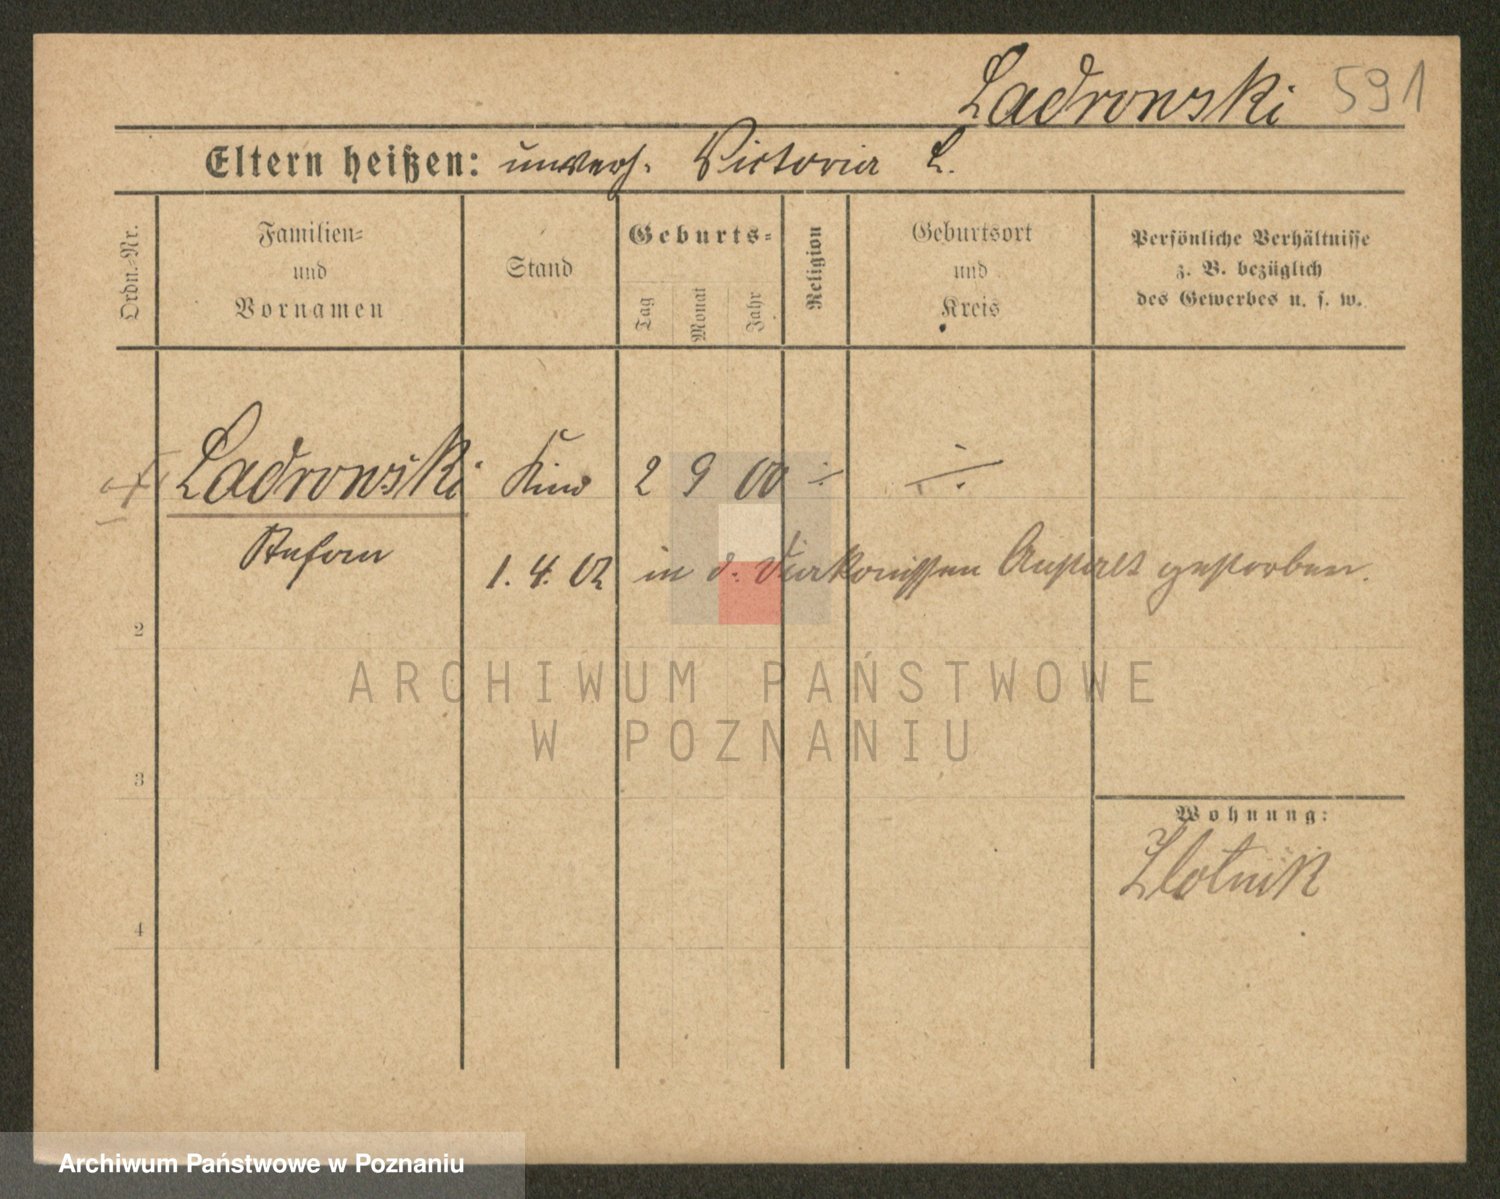 Ladrowski 591
Eltern heißen: unverh. Victoria L.
Ordn.-Nr.
Familien-
und
Vornamen
Stand
Geburts-
Tag
Monat
Jahr
Religion
Geburtsort
und
Kreis
Persönliche Verhältnisse
z. B. bezüglich
des Gewerbes u. s. w.
Ladrowski Kind 2 9 00 ÷ ÷
Stefan
1. 4. 02 in d. Diakonissen Anstalt gestorben.
2
3
4
Wohnung:
Zlotnik
ARCHIWUM PAŃSTWOWE
W POZNANIU
Archiwum Państwowe w Poznaniu